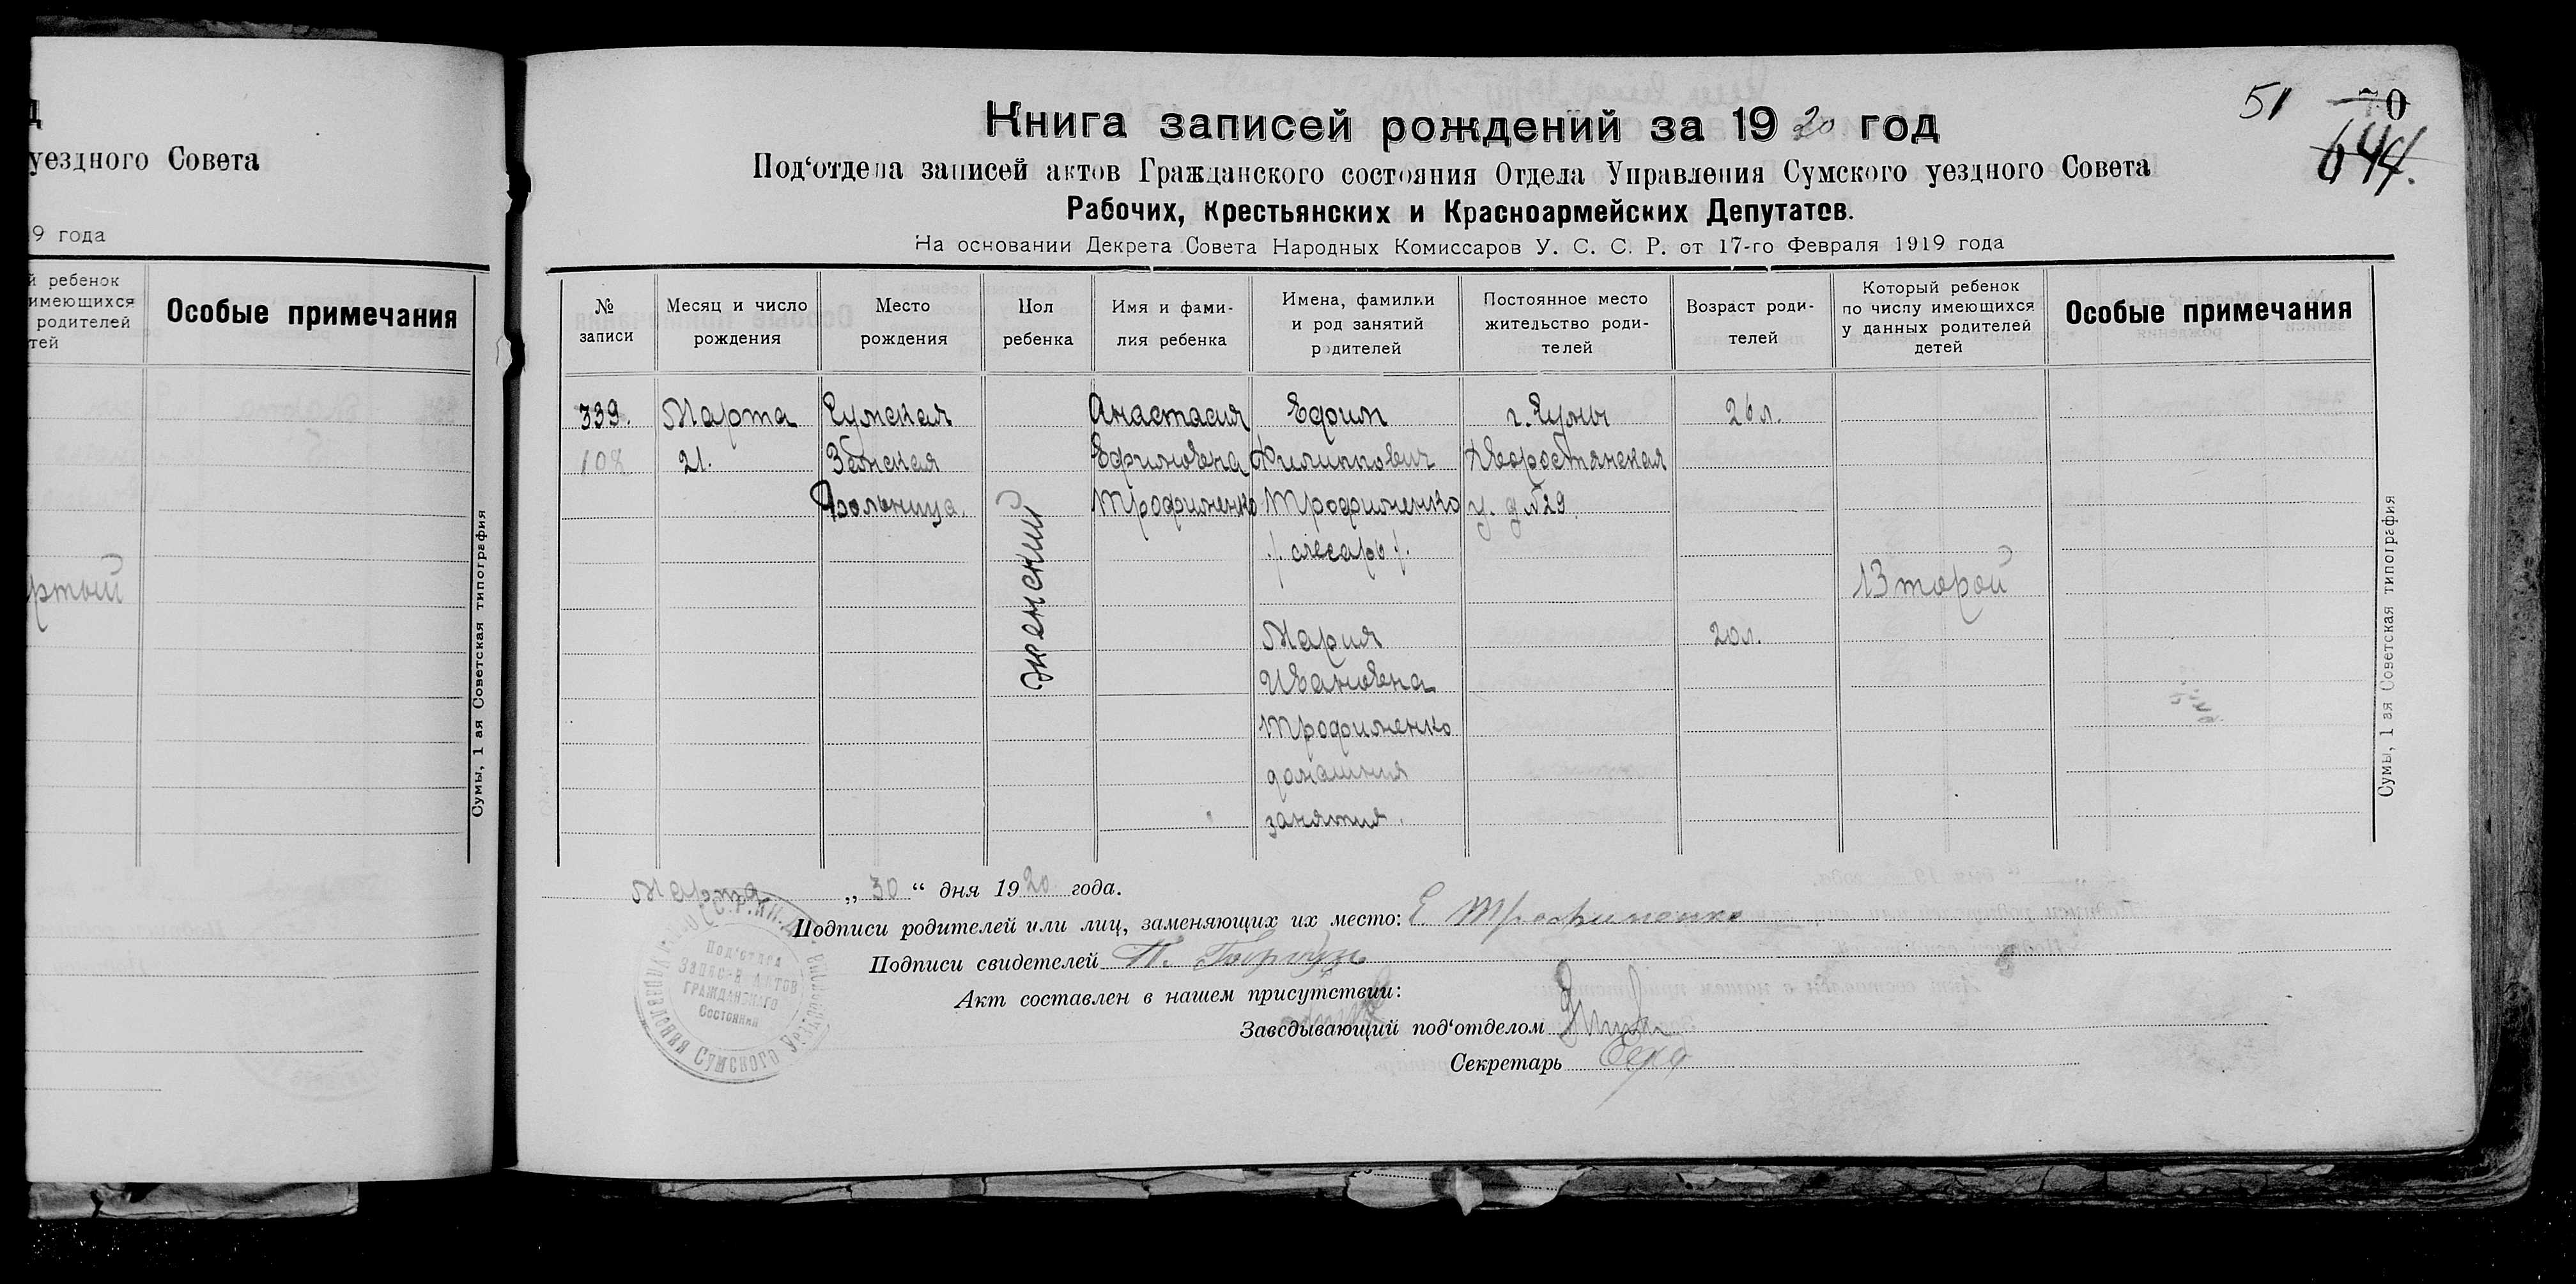 д
уездного Совета
9 года
й ребенок
имеющихся
родителей
тей
Особые примечания
ртый
Сумы, 1 ая Советская типография
51
70
644.
Книга записей рождений за 1920 год
Под‘отдела записей актов Гражданского состояния Отдела Управления Сумского уездного Совета
Рабочих, Крестьянских и Красноармейских Депутатов.
На основании Декрета Совета Народных Комиссаров У. С. С. Р. от 17-го Февраля 1919 года
№ записи
Месяц и число рождения
Место рождения
Пол ребенка
Имя и фами-
лия ребенка
Имена, фамилии
и род занятий
родителей
Постоянное место
жительство роди-
телей
Возраст роди-
телей
Который ребенок
по числу имеющихся
у данных родителей
детей
Особые примечания
339. Марта Сумская Анастасия Ефим г. Сумы 26 л.
108 21. Земская Ефимовна Филиппович
Больница. Трофименко Трофименко у. д №29.
женский
/. слесарь /.
Второй
Мария 20 л.
Ивановна
Трофименко
домашния
занятия.
Сумы, 1 ая Советская типография
Марта „30“ дня 1920 года.
Подписи родителей или лиц, заменяющих их место: Е Трофименко
Подписи свидетелей
Акт составлен в нашем присутствии:
Заведывающий под‘отделом
Секретарь
Под‘отдел
Запис-й Актов
Гражданского
Состояния
Управления Сумского